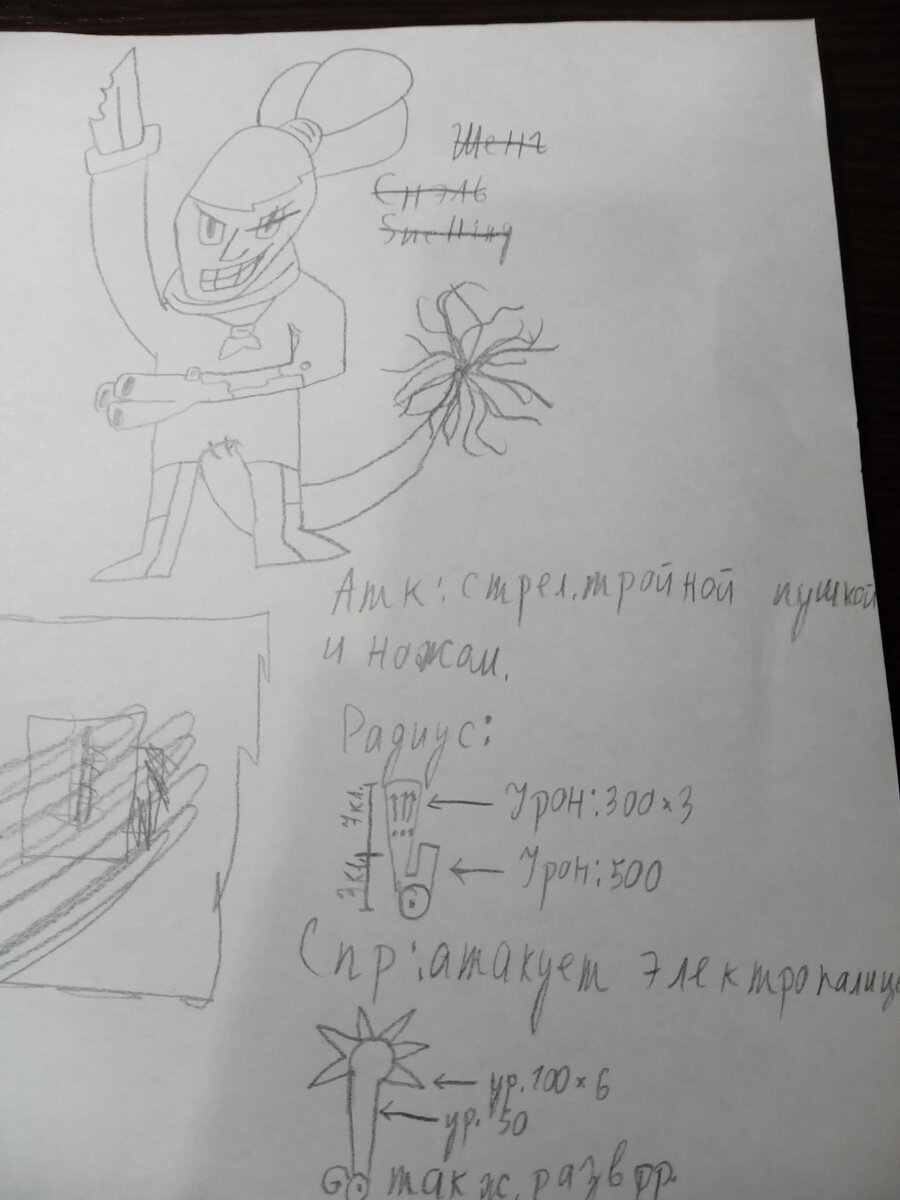 Шенг
Снэль
Snelling
Атк: стрел. тройной пушкой
и ножом.
Радиус:
7 кл.
Урон: 300×3
3 кл.
Урон: 500
Спр: атакует электропалице
ур. 100×6
ур. 50
такж. разв фр.